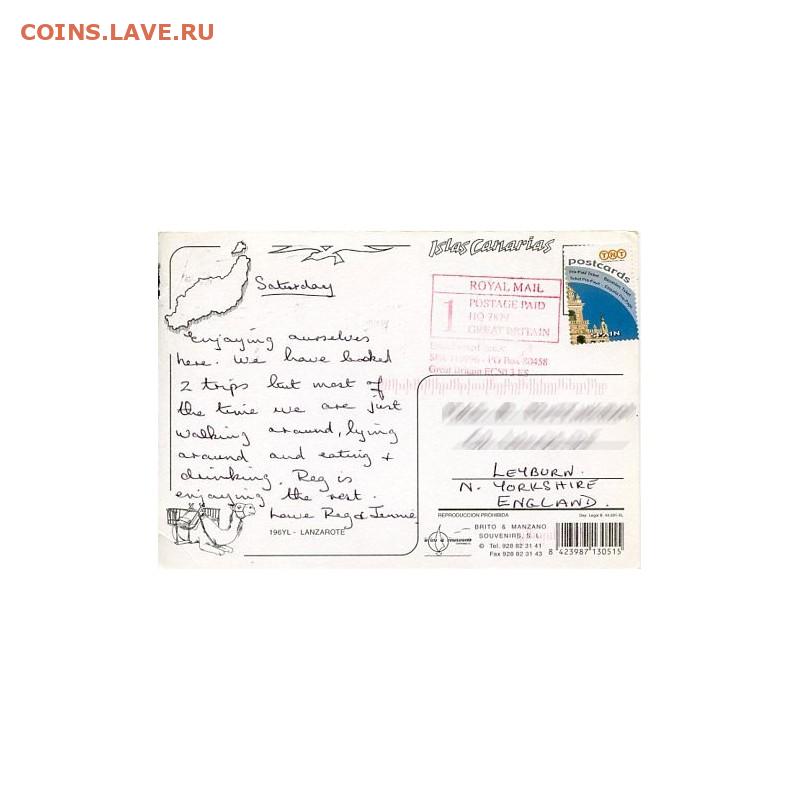 COINS.LAVE.RU
Islas Canarias
TNT
postcards
SPAIN
ROYAL MAIL
1 POSTAGE PAID
HQ 7829
GREAT BRITAIN
PO Box
Great Britain
Saturday
enjoying ourselves
here. We have booked
2 trips but most of
the time we are just
walking around, lying
around and eating +
drinking. Reg is
enjoying the rest.
Love Reg & Jennie
196YL - LANZAROTE
LEYBURN.
N. YORKSHIRE
ENGLAND.
REPRODUCCION PROHIBIDA
BRITO & MANZANO
SOUVENIRS, S.L.
© Tel. 928 82 31 41
Fax 928 82 31 43
8 423987 130515